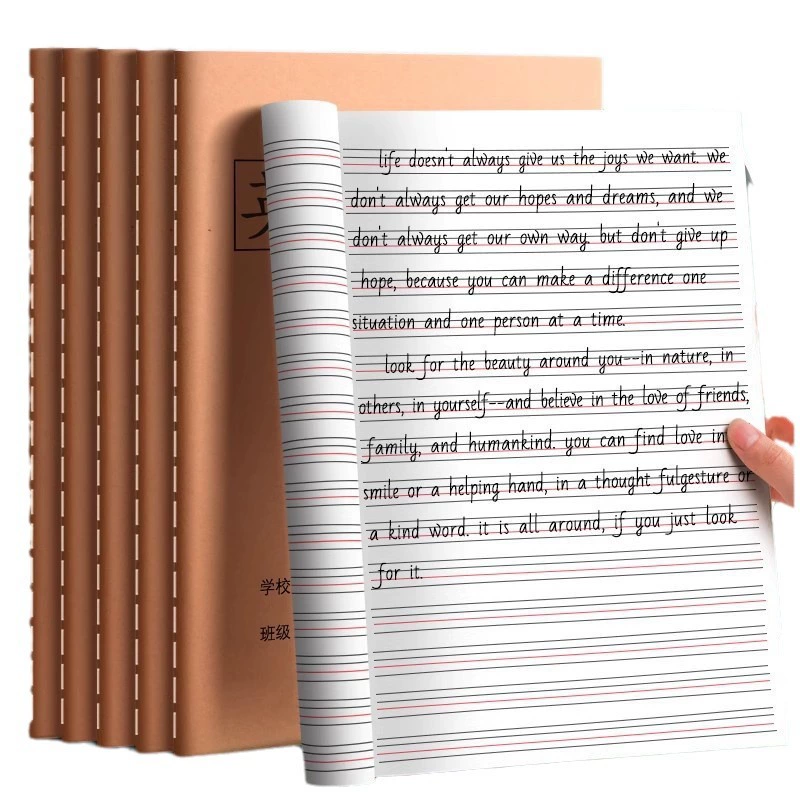 life doesn't always give us the joys we want. we
don't always get our hopes and dreams, and we
don't always get our own way. but don't give up
hope, because you can make a difference one
situation and one person at a time.
look for the beauty around you--in nature, in
others, in yourself--and believe in the love of friends,
family, and humankind. you can find love in
smile or a helping hand, in a thought fulgesture or
a kind word. it is all around, if you just look
for it.
学校
班级